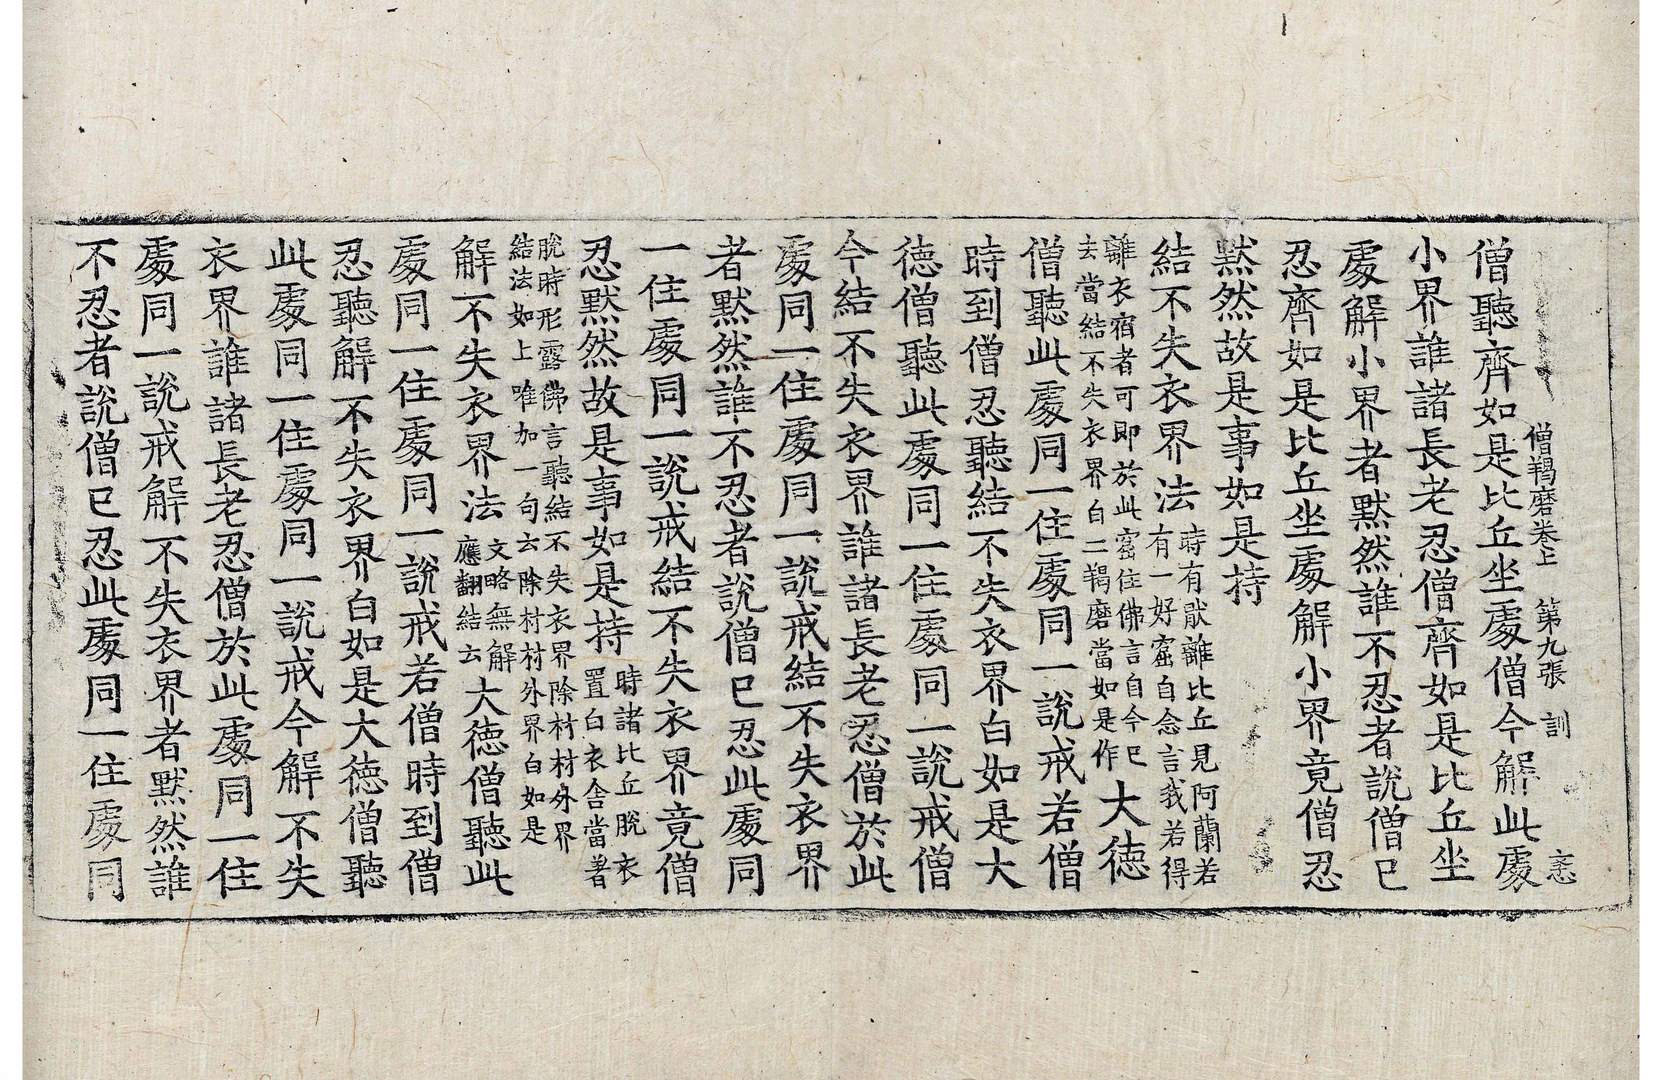 僧羯磨卷上　第九張　訓
僧聽齊如是比丘坐處僧今解此處
小界誰諸長老忍僧齊如是比丘坐
處解小界者默然誰不忍者說僧已
忍齊如是比丘坐處解小界竟僧忍
默然故是事如是持
結不失衣界法
時有猒離比丘見阿蘭若
有一好窟自念言我若得
離衣宿者可即於此窟住佛言自今已
去當結不失衣界白二羯磨當如是作
大德
僧聽此處同一住處同一說戒若僧
時到僧忍聽結不失衣界白如是大
德僧聽此處同一住處同一說戒僧
今結不失衣界誰諸長老忍僧於此
處同一住處同一說戒結不失衣界
者默然誰不忍者說僧已忍此處同
一住處同一說戒結不失衣界竟僧
忍默然故是事如是持
時諸比丘脫衣
置白衣舍當著
脫時形露佛言聽結不失衣界除村村外界
結法如上唯加一句云除村村外界白如是
解不失衣界法
文略無解
應翻結云
大德僧聽此
處同一住處同一說戒若僧時到僧
忍聽解不失衣界白如是大德僧聽
此處同一住處同一說戒今解不失
衣界誰諸長老忍僧於此處同一住
處同一說戒解不失衣界者默然誰
不忍者說僧已忍此處同一住處同